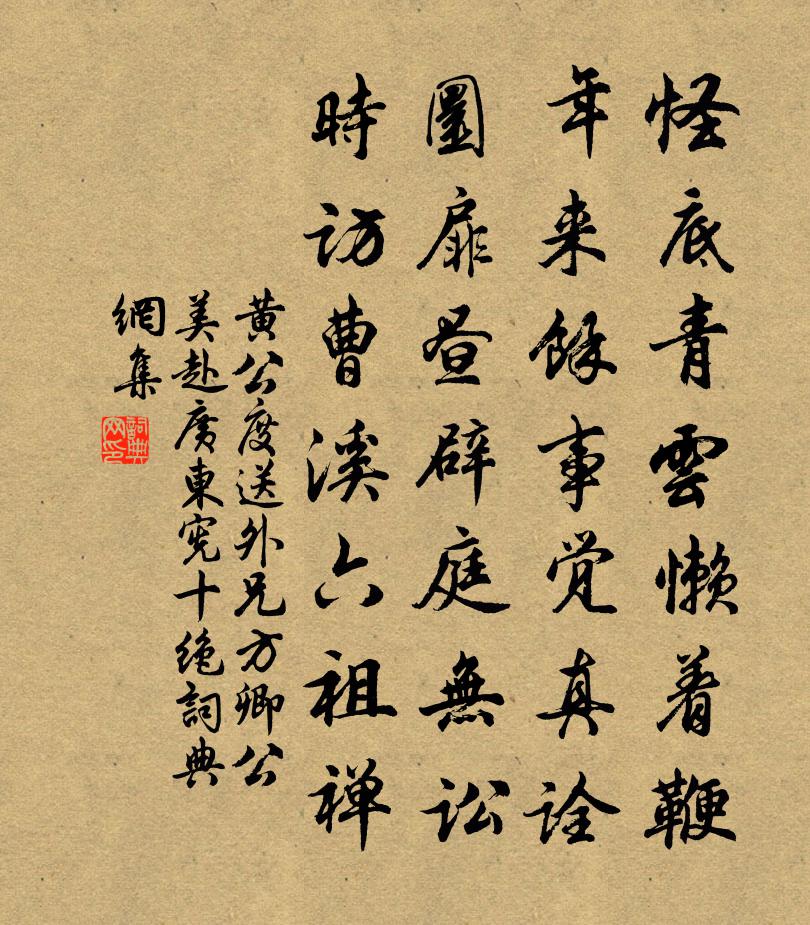 怪底青雲懒着鞭
年来餘事覚真诠
圜扉昼辟庭無讼
時访曹溪六祖禅
黄公度送外兄方卿公
美赴廣東宪十绝詞典
網集
詞典网印